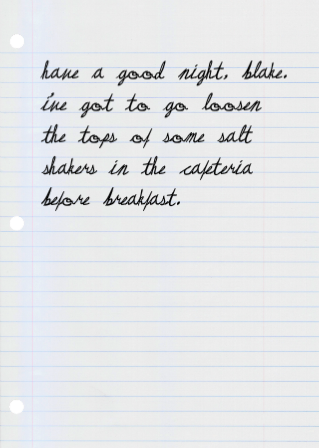 have a good night, blake.
i've got to go loosen
the tops of some salt
shakers in the cafeteria
before breakfast.